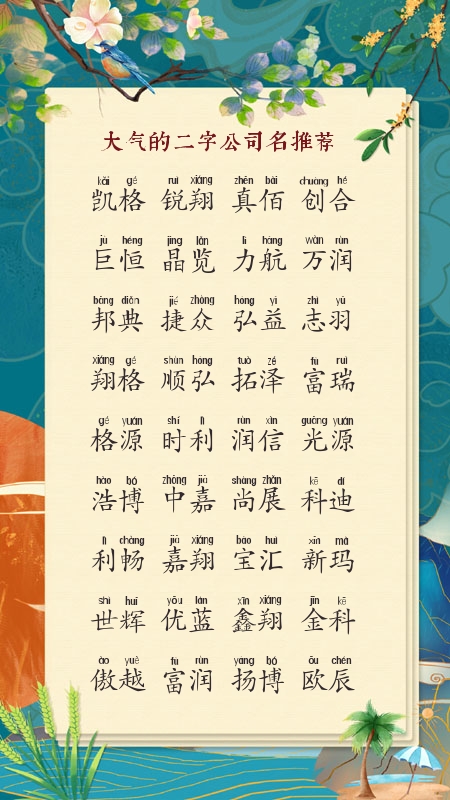 大气的二字公司名推荐
kǎi gé ruì xiáng zhēn bǎi chuàng hé
凯格 锐翔 真佰 创合
jù héng jīng lǎn lì háng wàn rùn
巨恒 晶览 力航 万润
bāng diǎn jié zhòng hóng yì zhì yǔ
邦典 捷众 弘益 志羽
xiáng gé shùn hóng tuò zé fù ruì
翔格 顺弘 拓泽 富瑞
gé yuán shí lì rùn xìn guāng yuán
格源 时利 润信 光源
hào bó zhōng jiā shàng zhǎn kē dí
浩博 中嘉 尚展 科迪
lì chàng jiā xiáng bǎo huì xīn mǎ
利畅 嘉翔 宝汇 新玛
shì huī yōu lán xīn xiáng jīn kē
世辉 优蓝 鑫翔 金科
ào yuè fù rùn yáng bó ōu chén
傲越 富润 扬博 欧辰